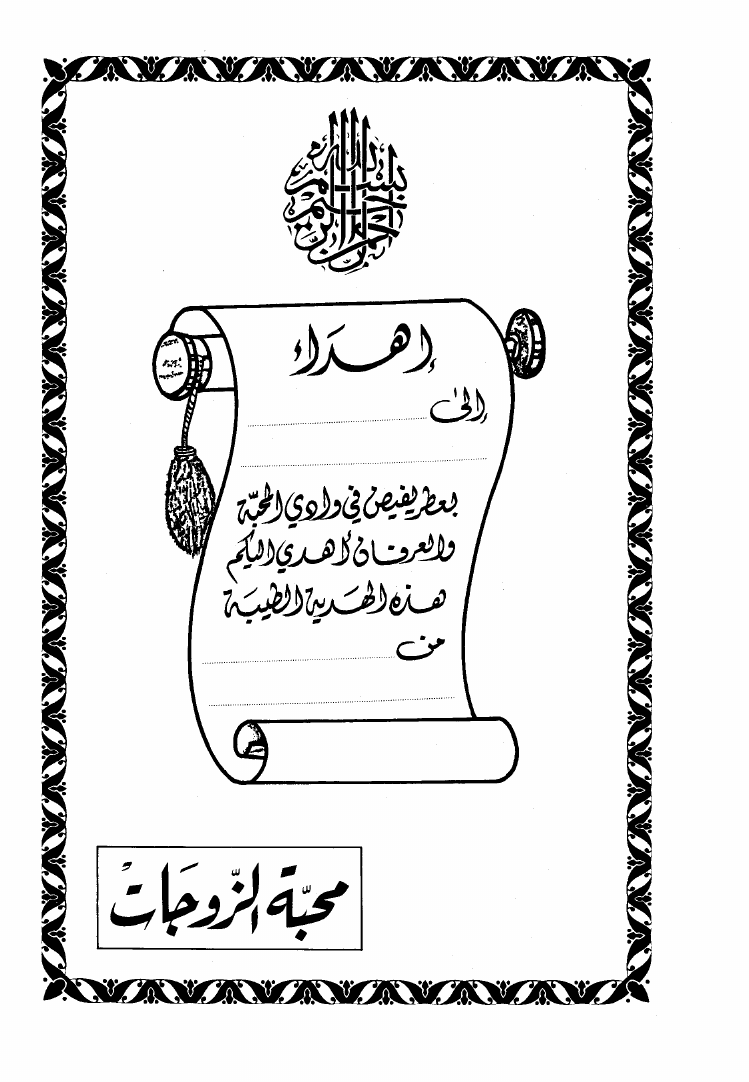 بسم الله الرحمن الرحيم
إهداء
إلى
بعطر يفيض في وادي المحبّة
والعرفان أهدي اليكم
هذه الهدية الطيبة
من
محبّة الزّوجات